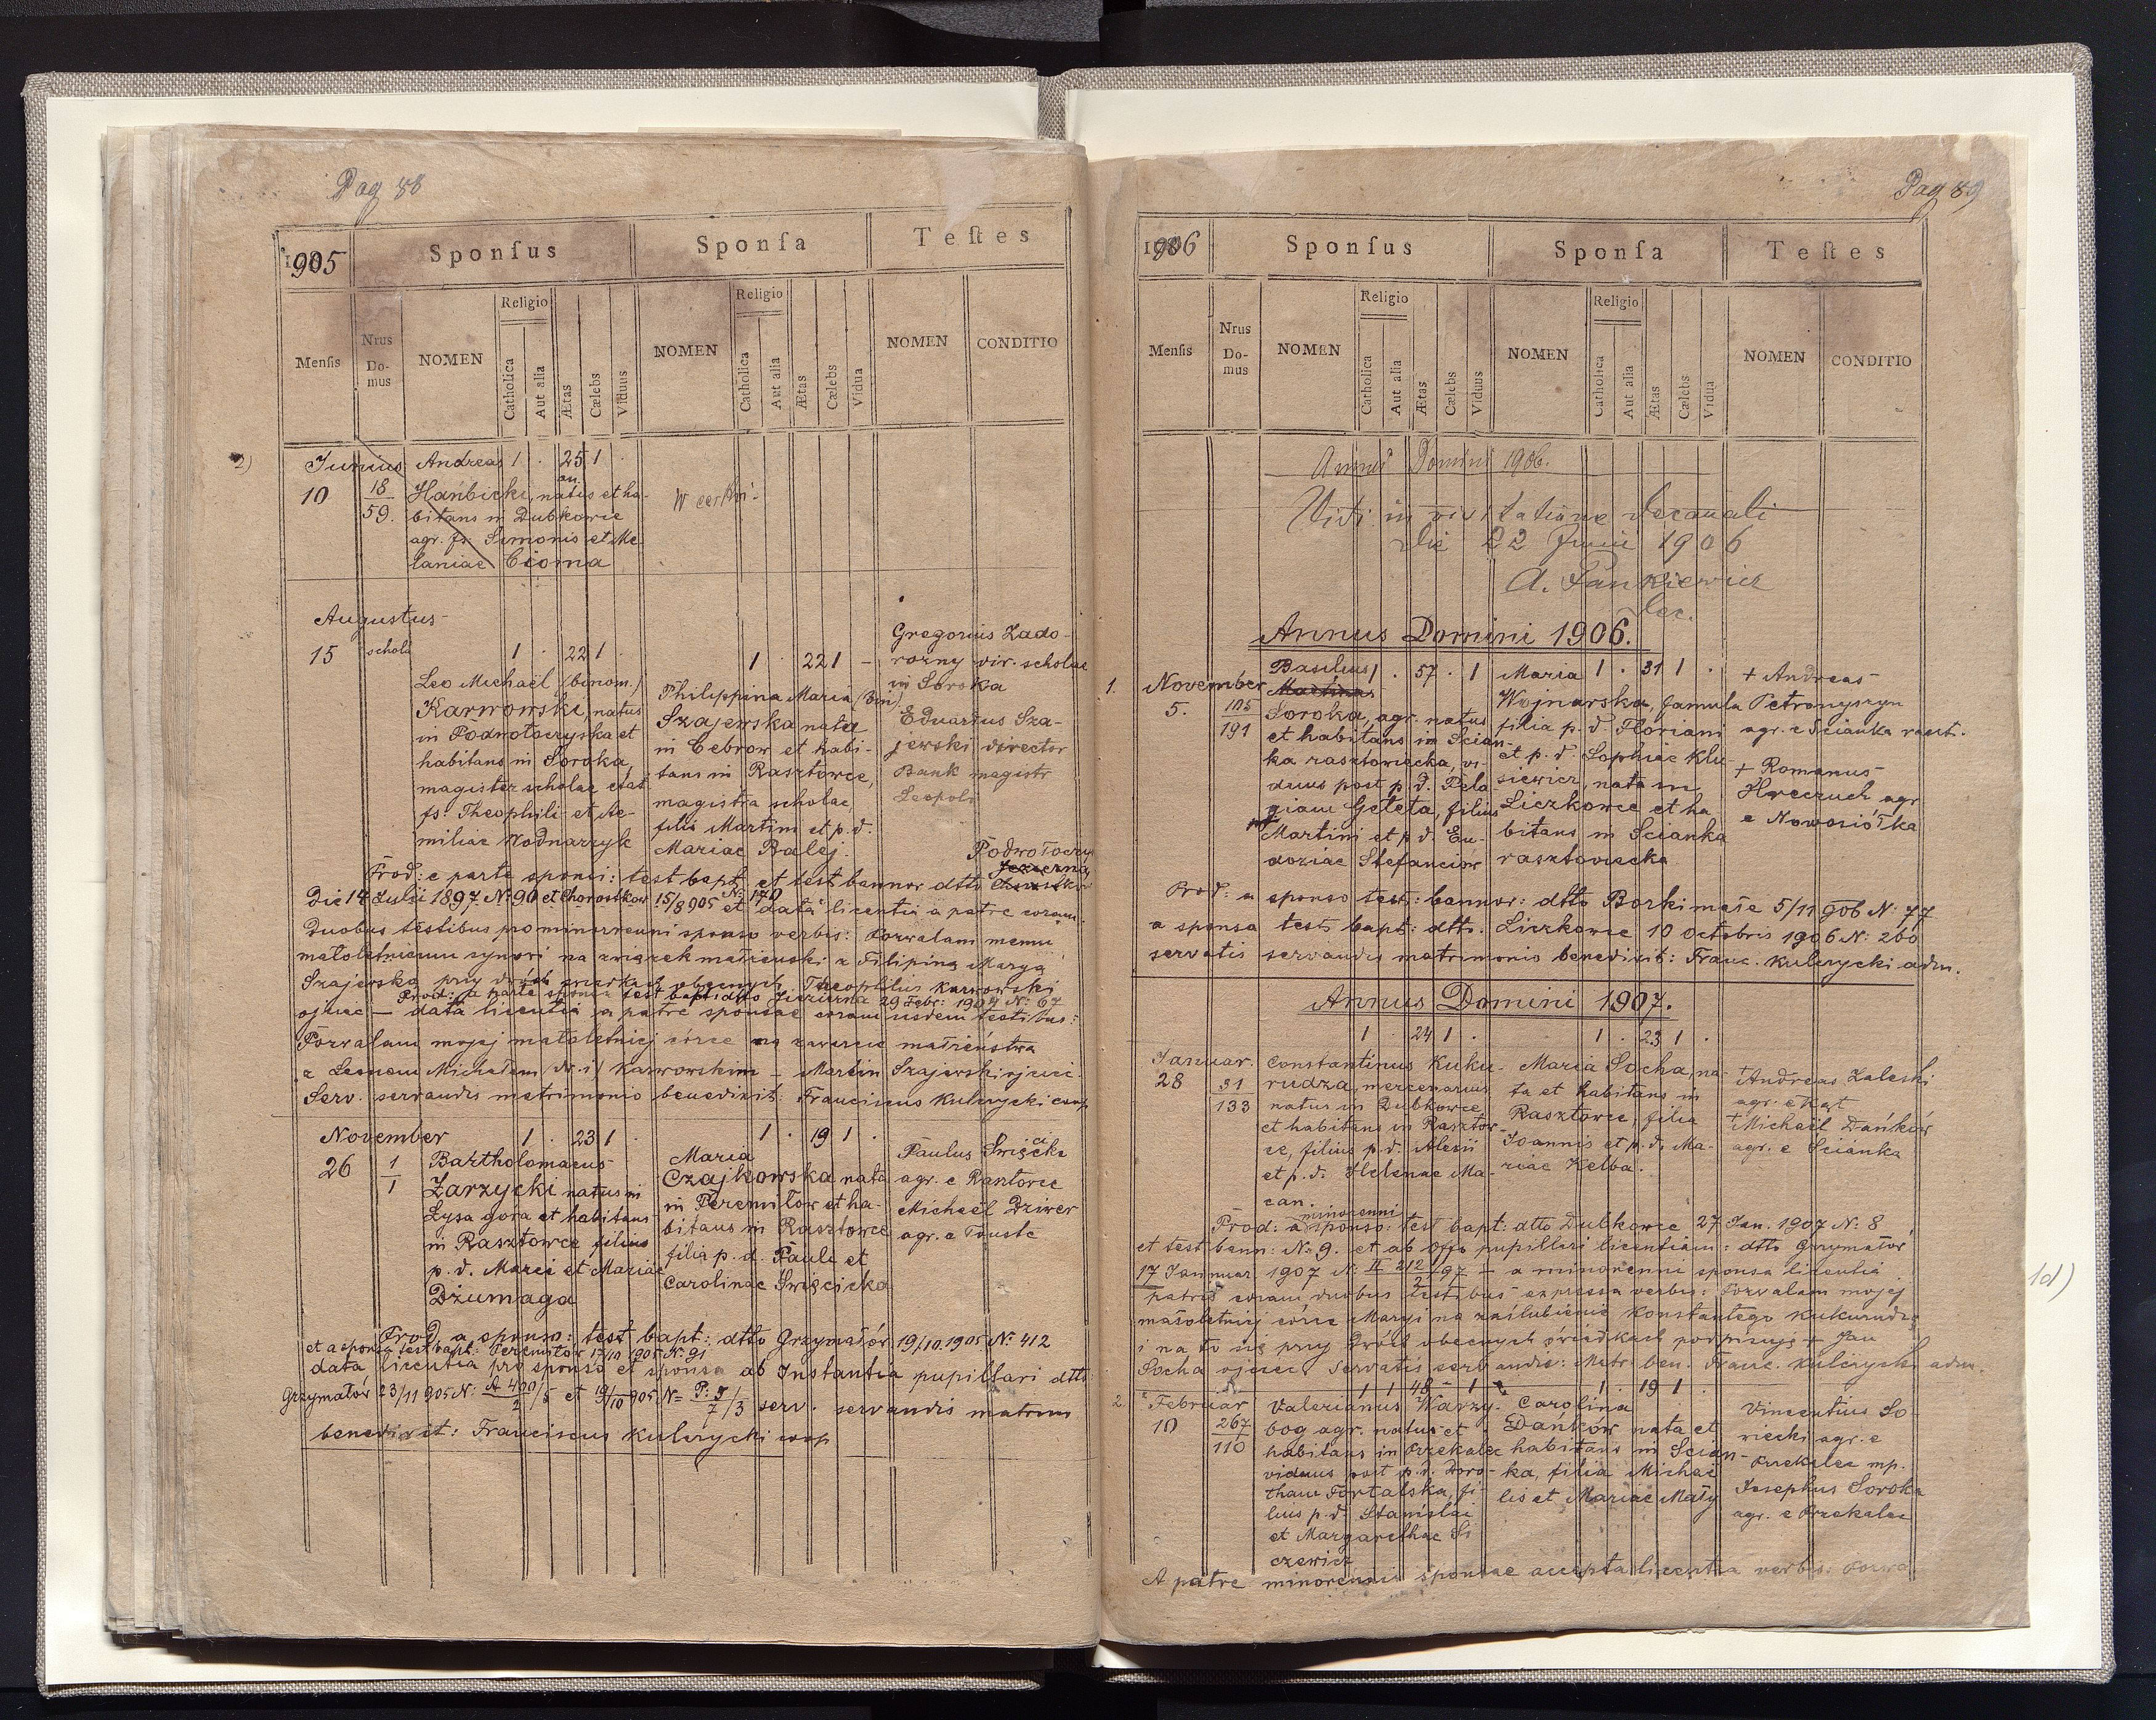 Pag 88
1905
Sponſus
Sponſa
Teſtes
Menſis
Nrus Domus
NOMEN
Religio
Catholica
Aut alia
Ætas
Cælebs
Viduus
NOMEN
Religio
Catholica
Aut alia
Ætas
Cælebs
Vidua
NOMEN
CONDITIO
2)
Junius Andreas 1 . 25 1 .
10 18/59. Hańbicki, natus et ha-
bitans in Dubkowce
agr. fs. Simonis et Me
laniae Cioma
W cerkwi
Augustus
15 schola 1 . 22 1 .
Leo Michaël (binom.)
Karwowski, natus
in Podwołoczyska et
habitans in Soroka,
magister scholae
fs. Theophili et Ae-
miliae Wodnarzyk
1 . 22 1 –
Philippina Maria (bin)
Szajewska nata
in Cebrow et habi-
tans in Rasztowce,
magistra scholae
filia Martini et p. d.
Mariae Balej.
Gregorius Zado-
rozny vir. scholae
in Soroka
Eduardus Sza-
jewski director
Bank magistr
Leopoli
Podwołoczy
Jezierna
Prod: e parte sponsi: test bapt et test bannor dtto
Die 14 Julii 1897 N: 90 et Chorostkow 15/8 905 N: 170 et data licentia a patre coram
Duobus testibus pro minorenni sponso verbis: Pozwalam memu
małoletniemu synowi na związek małżeński z Filipiną Maryą
Szajewską przy dwóch świadkach obecnych Theophilus Karwowski
Prod: a parte sponsae test bapt dtto Jezierna 29 Febr: 1904 N: 67
ojciec – data licentia a patre sponsae coram iisdem testibus:
Pozwalam mojej małoletniej córce na zawarcie małżeństwa
z Leonem Michałem (dw. i) Karwowskim – Marcin Szajewski ojciec.
Serv. servandis matrimonio benedixit: Franciscus Kulczycki coop
November 1 . 23 1 .
26 1/1 Bartholomaeus
Zarzycki natus in
Łysa gora et habitans
in Rasztowce filius
p. d. Marci et Mariae
Dżumaga
1 . 19 1 .
Maria
Czajkowska nata
in Peremiłow et ha-
bitans in Rasztowce
filia p. d. Pauli et
Carolinae Swięcicka
Paulus Swięcicki
agr. e Rasztowce
Michaël Dziwer
agr. e Touste
Prod. a sponso: test bapt: dtto Grzymałów 19/10.1905 N: 412
et a sponsa test bapt: Peremiłow 17/10 1905 N: 91
data licentia pro sponso et sponsa ab Instantia pupillari dtto
Grzymałów 23/11 905 N: A 400/2 /5 et 19/10 905 N= P. 5/7 /3 serv. servandis matrim
benedixit: Franciscus Kulczycki coop
Pag 89
1906
Sponſus
Sponſa
Teſtes
Menſis
Nrus Domus
NOMEN
Religio
Catholica
Aut alia
Ætas
Cælebs
Viduus
NOMEN
Religio
Catholica
Aut alia
Ætas
Cælebs
Vidua
NOMEN
CONDITIO
Annus Domini 1906.
Vidi in visitatione decanali
die 22 Junii 1906
A. Pankiewicz
dec.
Annus Domini 1906.
1. November
5. 105/191
Basilius 1 . 57 . 1
Martinus
Soroka, agr. natus
et habitans in Scian-
ka rasztowiecka, vi-
duus post p. d. Pela
giam Geleta, filius
Martini et p. d. Eu-
doxiae Stefanciów
Maria 1 . 31 1 .
Wojnarska, famula
filia p. d. Floriani
et p. d. Sophiae Klu-
siewicz, nata in
Liczkowce et ha
bitans in Scianka
rasztowiecka
+ Andreas
Petronyszyn
agr. e Scianka raszt.
+ Romanus
Hreczuch agr
e Nowosiółka
Prod: a sponso test: bannor: dtto Borki małe 5/11 906 N: 77
a sponsa test bapt: dtto. Liczkowce 10 octobris 1906 N: 260
servatis servandis matrimonio benedixit: Franc. Kulczycki adm.
Annus Domini 1907.
1 . 24 1 . 1 . 23 1 .
Januar.
28 31/133
Constantinus Kuku-
rudza, mercenarius
natus in Dubkowce
et habitans in Rasztow-
ce, filius p. d. Alexii
et p. d. Helenae Ma-
can.
Maria Socha, na-
ta et habitans in
Rasztowce, filia
Joannis et p. d. Ma-
riae Kelba.
+ Andreas Zaleski
agr. e Kąt
+ Michaël Dańków
agr. e Scianka
Prod: a minorenni sponso: test bapt: dtto Dubkowce 27 Jan. 1907 N: 8
et test bann: N: 9. et ab offo pupillari licentiam: dtto Grzymałów
17 Januar 1907 N: II 212/2 /97 – a minorenni sponsa licentia
patris coram duobus testibus expressa verbis: Pozwalam mojej
małoletniej córce Maryi na zaślubienie Konstantego Kukurudzę
i na to się przy dwóch obecnych świadkach podpisuję + Jan
Socha ojciec. Servatis servandis: Matr. ben. Franc. Kulczycki adm.
1d)
1 1 48 – 1 1 . 19 1 .
2. Februar
10 267/110
Valerianus Warzy-
bog agr. natus et
habitans in Przekalec
viduus post p. d. Doro-
tham Portalska, fi-
lius p. d. Stanislai
et Margarethae Si
czewicz
Carolina
Dańków nata et
habitans in Scian-
ka, filia Michaë
lis et Mariae Mały
Vincentius So-
wiecki agr. e
Przekalec mp.
Josephus Soroka
agr. e Przekalec
A patre minorennis sponsae accepta licentia verbis: Pozwa